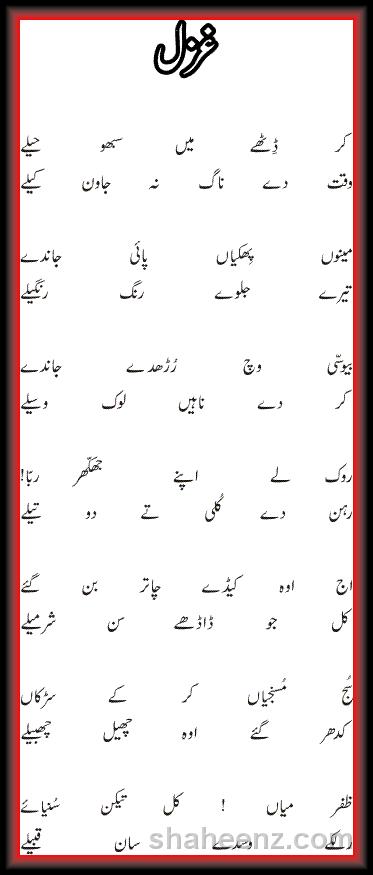 غزل
کر ڈِٹھے میں سبھو حیلے
وقت دے ناگ نہ جاون کیلے
مینوں پھکیاں پائی جاندے
تیرے جلوے رنگ رنگیلے
بیوسّی وچ رُڑھدے جاندے
کر دے ناہیں لوک وسیلے
روک لے اپنے جھکھّر ربّا!
رہن دے کُلی تے دو تیلے
اج اوہ کیڈے چاتر بن گئے
کل جو ڈاڈھے سن شرمیلے
سُج مُسنجیاں کر کے سڑکاں
کدھر گئے اوہ چھیل چھبیلے
ظفر میاں ! کل تیکن سُنیائے
رالکے وسدے سان قبیلے
shaheenz.com